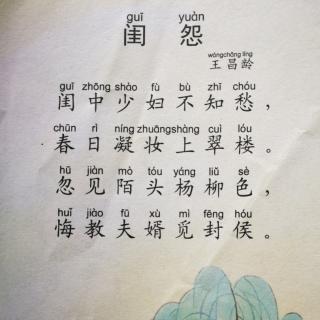 guī yuàn
闺 怨
wángchāng líng
王昌龄
guī zhōng shào fù bù zhī chóu
闺中少妇不知愁，
chūn rì níng zhuāng shàng cuì lóu
春日凝妆上翠楼。
hū jiàn mò tóu yáng liǔ sè
忽见陌头杨柳色，
huǐ jiào fū xù mì fēng hóu
悔教夫婿觅封侯。